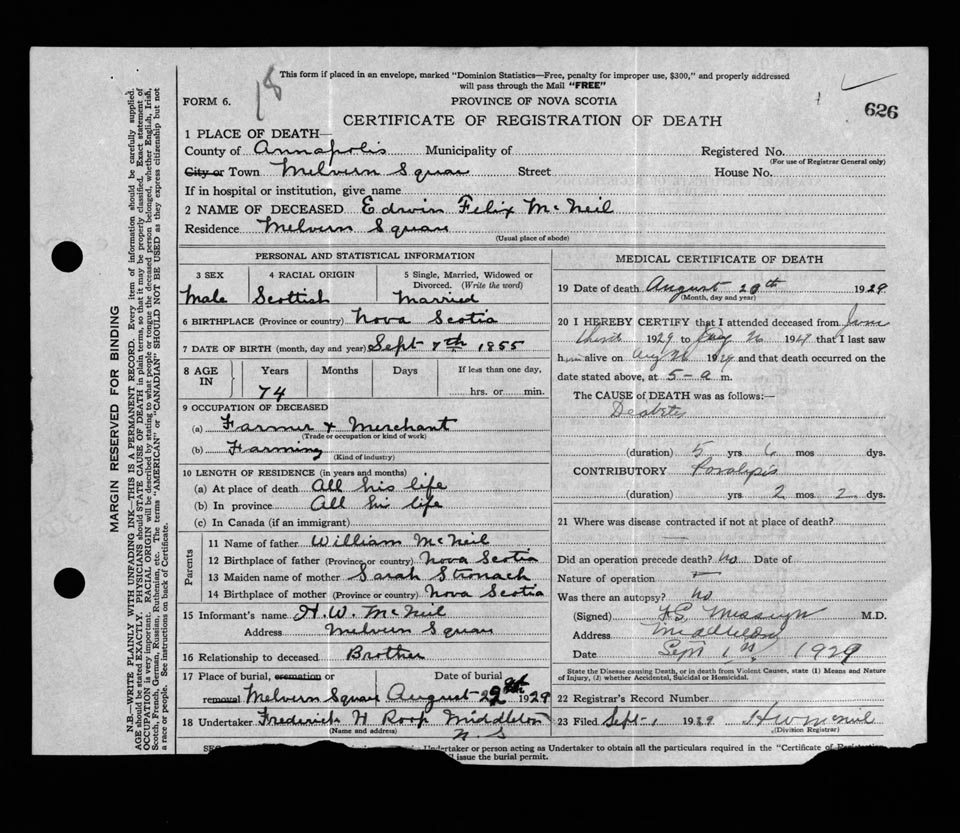 18
This form if placed in an envelope, marked "Dominion Statistics—Free, penalty for improper use, $300," and properly addressed
will pass through the Mail "FREE"
626
FORM 6.
PROVINCE OF NOVA SCOTIA
CERTIFICATE OF REGISTRATION OF DEATH
1 PLACE OF DEATH—
County of Annapolis Municipality of Registered No.
(For use of Registrar General only)
City or Town Melvern Square Street House No.
If in hospital or institution, give name
2 NAME OF DECEASED Edwin Felix McNeil
Residence Melvern Square
(Usual place of abode)
PERSONAL AND STATISTICAL INFORMATION
3 SEX 4 RACIAL ORIGIN 5 Single, Married, Widowed or
Divorced. (Write the word)
Male Scottish Married
6 BIRTHPLACE (Province or country) Nova Scotia
7 DATE OF BIRTH (month, day and year) Sept 7th 1855
8 AGE IN Years Months Days If less than one day,
74 hrs. or min.
9 OCCUPATION OF DECEASED
(a) Farmer & Merchant
(Trade or occupation or kind of work)
(b) Farming
(Kind of industry)
10 LENGTH OF RESIDENCE (in years and months)
(a) At place of death All his life
(b) In province All his life
(c) In Canada (if an immigrant)
Parents
11 Name of father William McNeil
12 Birthplace of father (Province or country) Nova Scotia
13 Maiden name of mother Sarah Stronach
14 Birthplace of mother (Province or country) Nova Scotia
15 Informant's name H. W. McNeil
Address Melvern Square
16 Relationship to deceased Brother
17 Place of burial, cremation or Date of burial
removal Melvern Square August 1929
18 Undertaker Frederick H Roop Middleton
(Name and address) N. S
MEDICAL CERTIFICATE OF DEATH
19 Date of death August 1929
(Month, day and year)
20 I HEREBY CERTIFY that I attended deceased from June
1929 to 26 that I last saw
him alive on Aug 26 and that death occurred on the
date stated above, at 5 - a m.
The CAUSE of DEATH was as follows:—
(duration) 5 yrs 6 mos dys.
CONTRIBUTORY Paralysis
(duration) yrs 2 mos 2 dys.
21 Where was disease contracted if not at place of death?
Did an operation precede death? no Date of
Nature of operation
Was there an autopsy? No
(Signed) M.D.
Address Middleton
Date Sept 1st 1929
State the Disease causing Death, or in death from Violent Causes, state (1) Means and Nature
of Injury, (!) whether Accidental, Suicidal or Homicidal.
22 Registrar's Record Number
23 Filed Sept 1 1929 H W McNeil
(Division Registrar)
Undertaker or person acting as Undertaker to obtain all the particulars required in the "Certificate of
issue the burial permit.
MARGIN RESERVED FOR BINDING
N.B.—WRITE PLAINLY WITH UNFADING INK—THIS IS A PERMANENT RECORD. Every item of information should be carefully supplied.
AGE should be stated EXACTLY. PHYSICIANS should STATE CAUSE OF DEATH in plain terms, so that it may be properly classified. Exact statement of
OCCUPATION is very important. RACIAL ORIGIN will be described by stating to what people or tongue the deceased person belonged, whether English, Irish,
Scotch, French, German, Russian, Ruthenian, etc. The terms "AMERICAN" or "CANADIAN" SHOULD NOT BE USED as they express citizenship but not
a race or people. See instructions on back of Certificate.